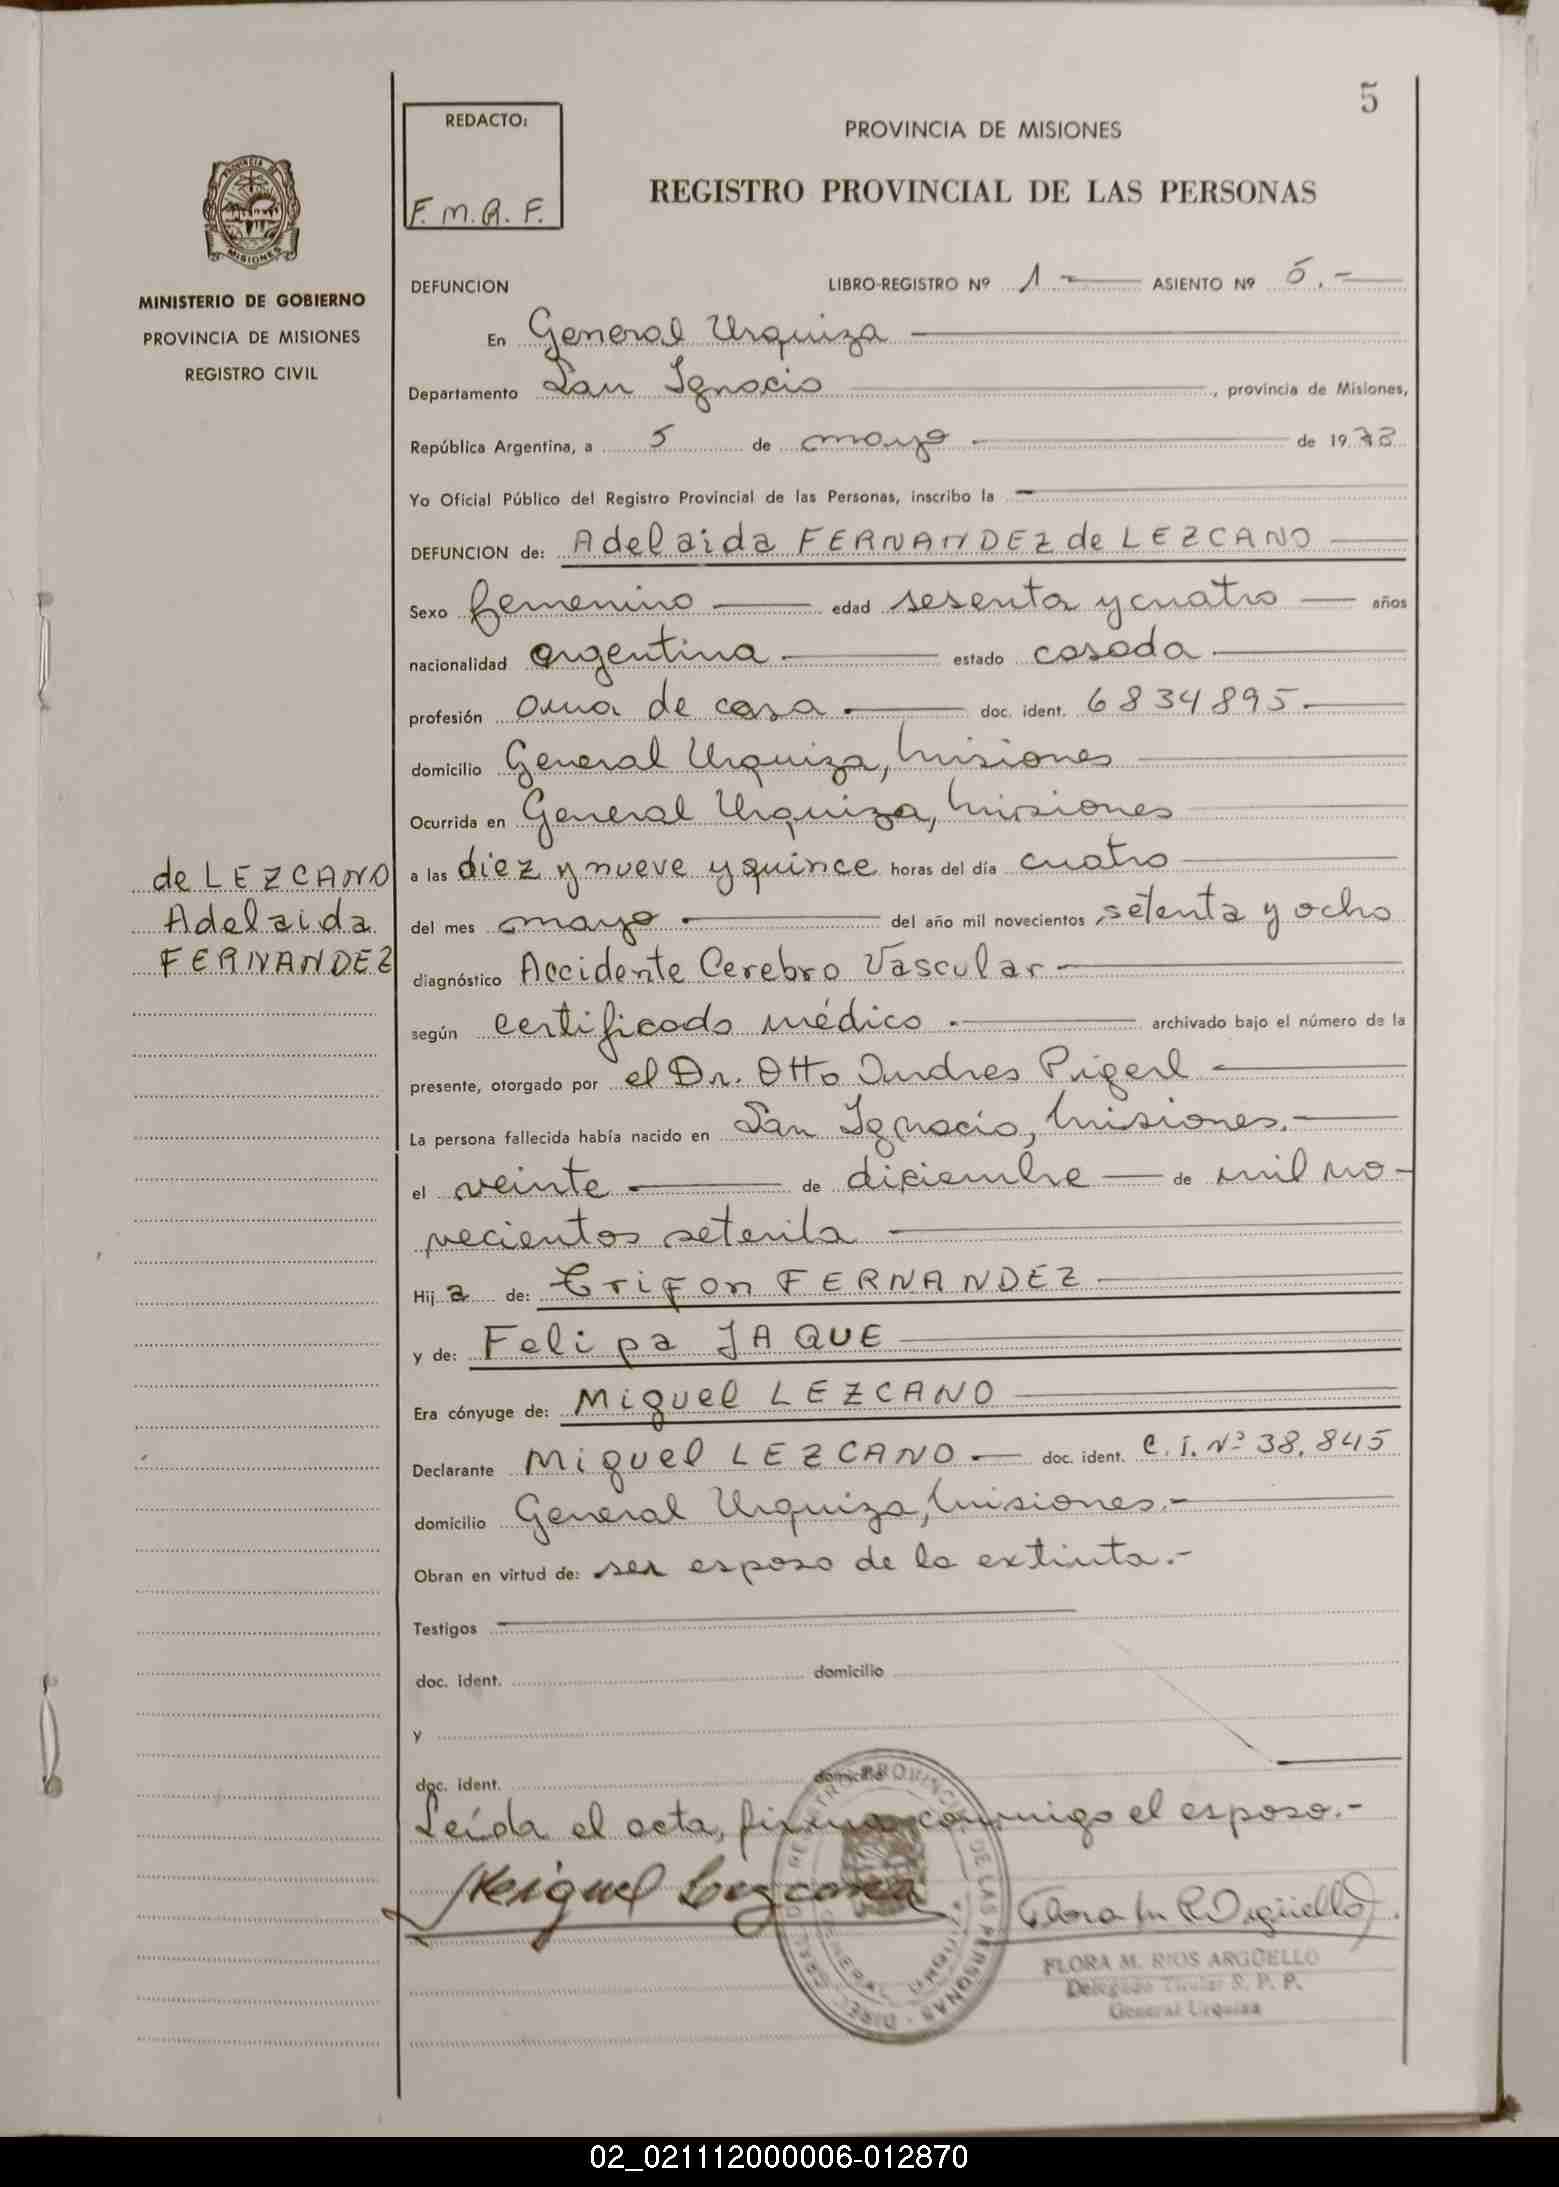 5
REDACTO:
F. M. R. F.
PROVINCIA DE MISIONES
REGISTRO PROVINCIAL DE LAS PERSONAS
MISIONES
MINISTERIO DE GOBIERNO
PROVINCIA DE MISIONES
REGISTRO CIVIL
DEFUNCION LIBRO-REGISTRO Nº 1 - ASIENTO Nº 5.-
En General Urquiza
Departamento San Ignacio, provincia de Misiones,
República Argentina, a 5 de mayo de 1978
Yo Oficial Público del Registro Provincial de las Personas, inscribo la
DEFUNCION de: Adelaida FERNANDEZ de LEZCANO
Sexo femenino edad sesenta y cuatro años
nacionalidad argentina estado casada
profesión ama de casa doc. ident. 6834895.
domicilio General Urquiza, Misiones
Ocurrida en General Urquiza, Misiones
a las diez y nueve y quince horas del día cuatro
del mes mayo del año mil novecientos setenta y ocho
diagnóstico Accidente Cerebro Vascular
según certificado médico archivado bajo el número de la
presente, otorgado por el Dr. Otto Andres Pigerl
La persona fallecida había nacido en San Ignacio, Misiones.
el veinte de diciembre de mil no-
vecientos setenta
Hij a de: Trifon FERNANDEZ
y de: Felipa JAQUE
Era cónyuge de: Miguel LEZCANO
Declarante Miguel LEZCANO doc. ident. C. I. Nº 38.845
domicilio General Urquiza, Misiones.-
Obran en virtud de: ser esposo de la extinta.-
Testigos
doc. ident. domicilio
y
doc. ident. domicilio
Leída el acta, firma conmigo el esposo.-
Miguel Lezcano
Flora M R Argüello
FLORA M. RIOS ARGÜELLO
Delegado Titular R. P. P.
General Urquiza
de LEZCANO
Adelaida
FERNANDEZ
02_021112000006-012870